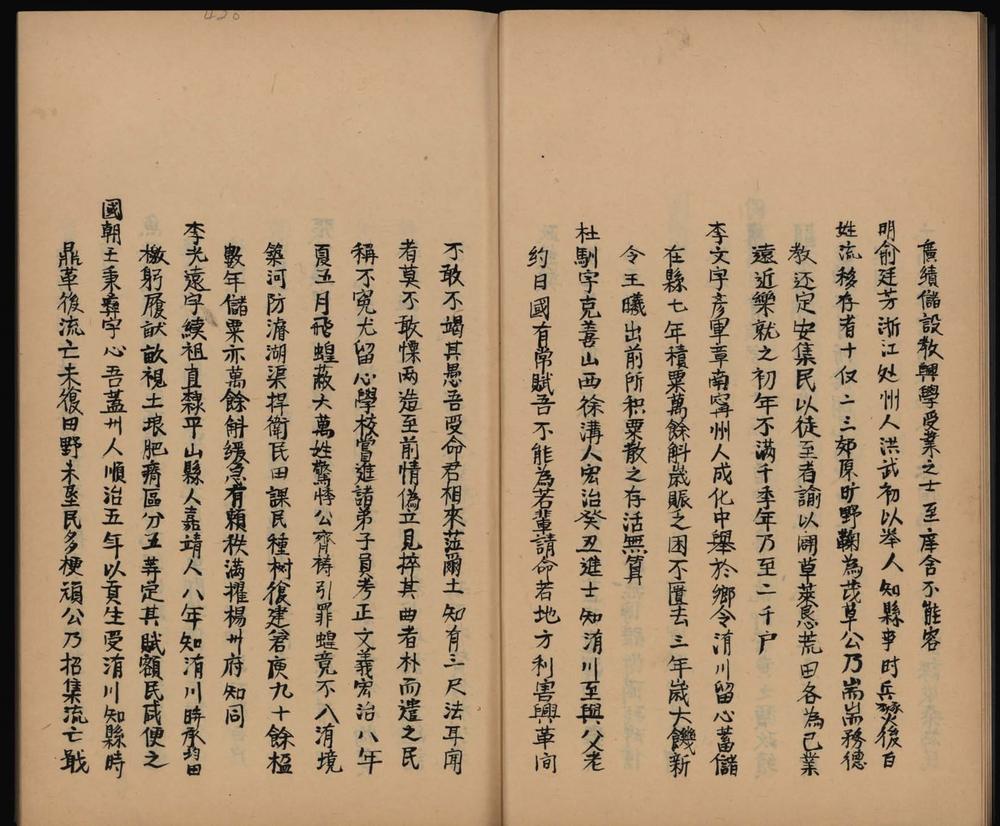 廣績儲設教興學受業之士至庠舍不能容
明俞廷芳淅江处州人洪武初以举人知縣事时兵燹後百
姓流移存者十仅二三郊原旷野鞠為茂草公乃耑耑務德
教还定安集民以徒至者諭以闢草萊悬荒田各為己業
遠近樂就之初年不满千季年乃至二千户
李文字彦军章南寧州人成化中舉於鄉令洧川留心蓄儲
在縣七年積粟萬餘斛歲賑之困不匱去三年歲大饑新
令王曦出前所积粟散之存活無算
杜馴字克善山西徐溝人宏治癸丑進士知洧川至與父老
约曰國有常賦吾不能為若輩請命若地方利害興革间
不敢不竭其愚吾受命君相來蒞爾土知有三尺法耳闻
者莫不敢慄两造至前情偽立見捽其曲者朴而遣之民
稱不寃尤留心學校嘗進諸弟子員考正文義宏治八年
夏五月飛蝗蔽大萬姓驚悸公齊祷引罪蝗竟不入洧境
築河防濬湖渠捍衛民田課民種树復建窘庾九十餘楹
數年儲粟亦萬餘斛缓急有賴秩满擢楊州府知同
李光遠字續祖直隸平山縣人嘉靖人八年知洧川時承均田
檄躬履畎畝視土琅肥瘠區分五等定其賦額民咸便之
國朝王秉彝字心吾蓋州人順治五年以貢生受洧川知縣時
鼎革後流亡未復田野未垦民多梗頑公乃招集流亡戢